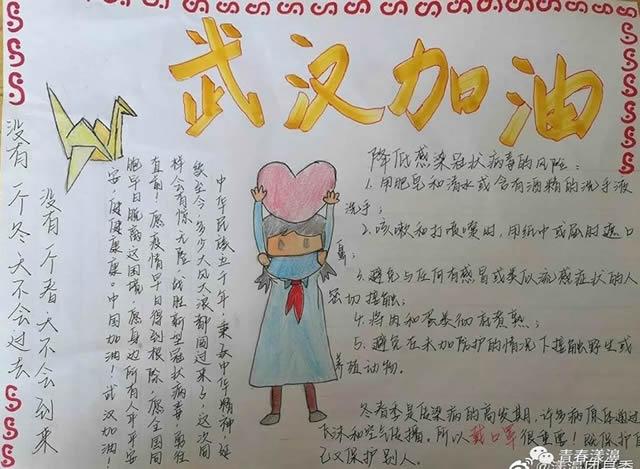 武汉加油
没有一个冬天不会过去
没有一个春天不会到来
中华民族五千年,秉承中华精神,延
续至今,多少大风大浪都闯过来了,这次同
样会有惊无险,战胜新型冠状病毒,勇往
直前!愿疫情早日得到根除,愿全国同
胞早日脱离这困境,愿身边所有人平平安
安,健健康康。中国加油!武汉加油!
降低感染冠状病毒的风险:
1.用肥皂和清水或含有酒精的洗手液
洗手;
2.咳嗽和打喷嚏时,用纸巾或屈肘遮口
鼻;
3.避免与任何有感冒或类似流感症状的人
密切接触;
4.将肉和蛋类彻底煮熟;
5.避免在未加防护的情况下接触野生或
养殖动物。
冬春季是传染病的高发期,许多病原体通过
飞沫和空气传播。所以戴口罩很重要!既保护自
己又保护别人。
青春漾濞